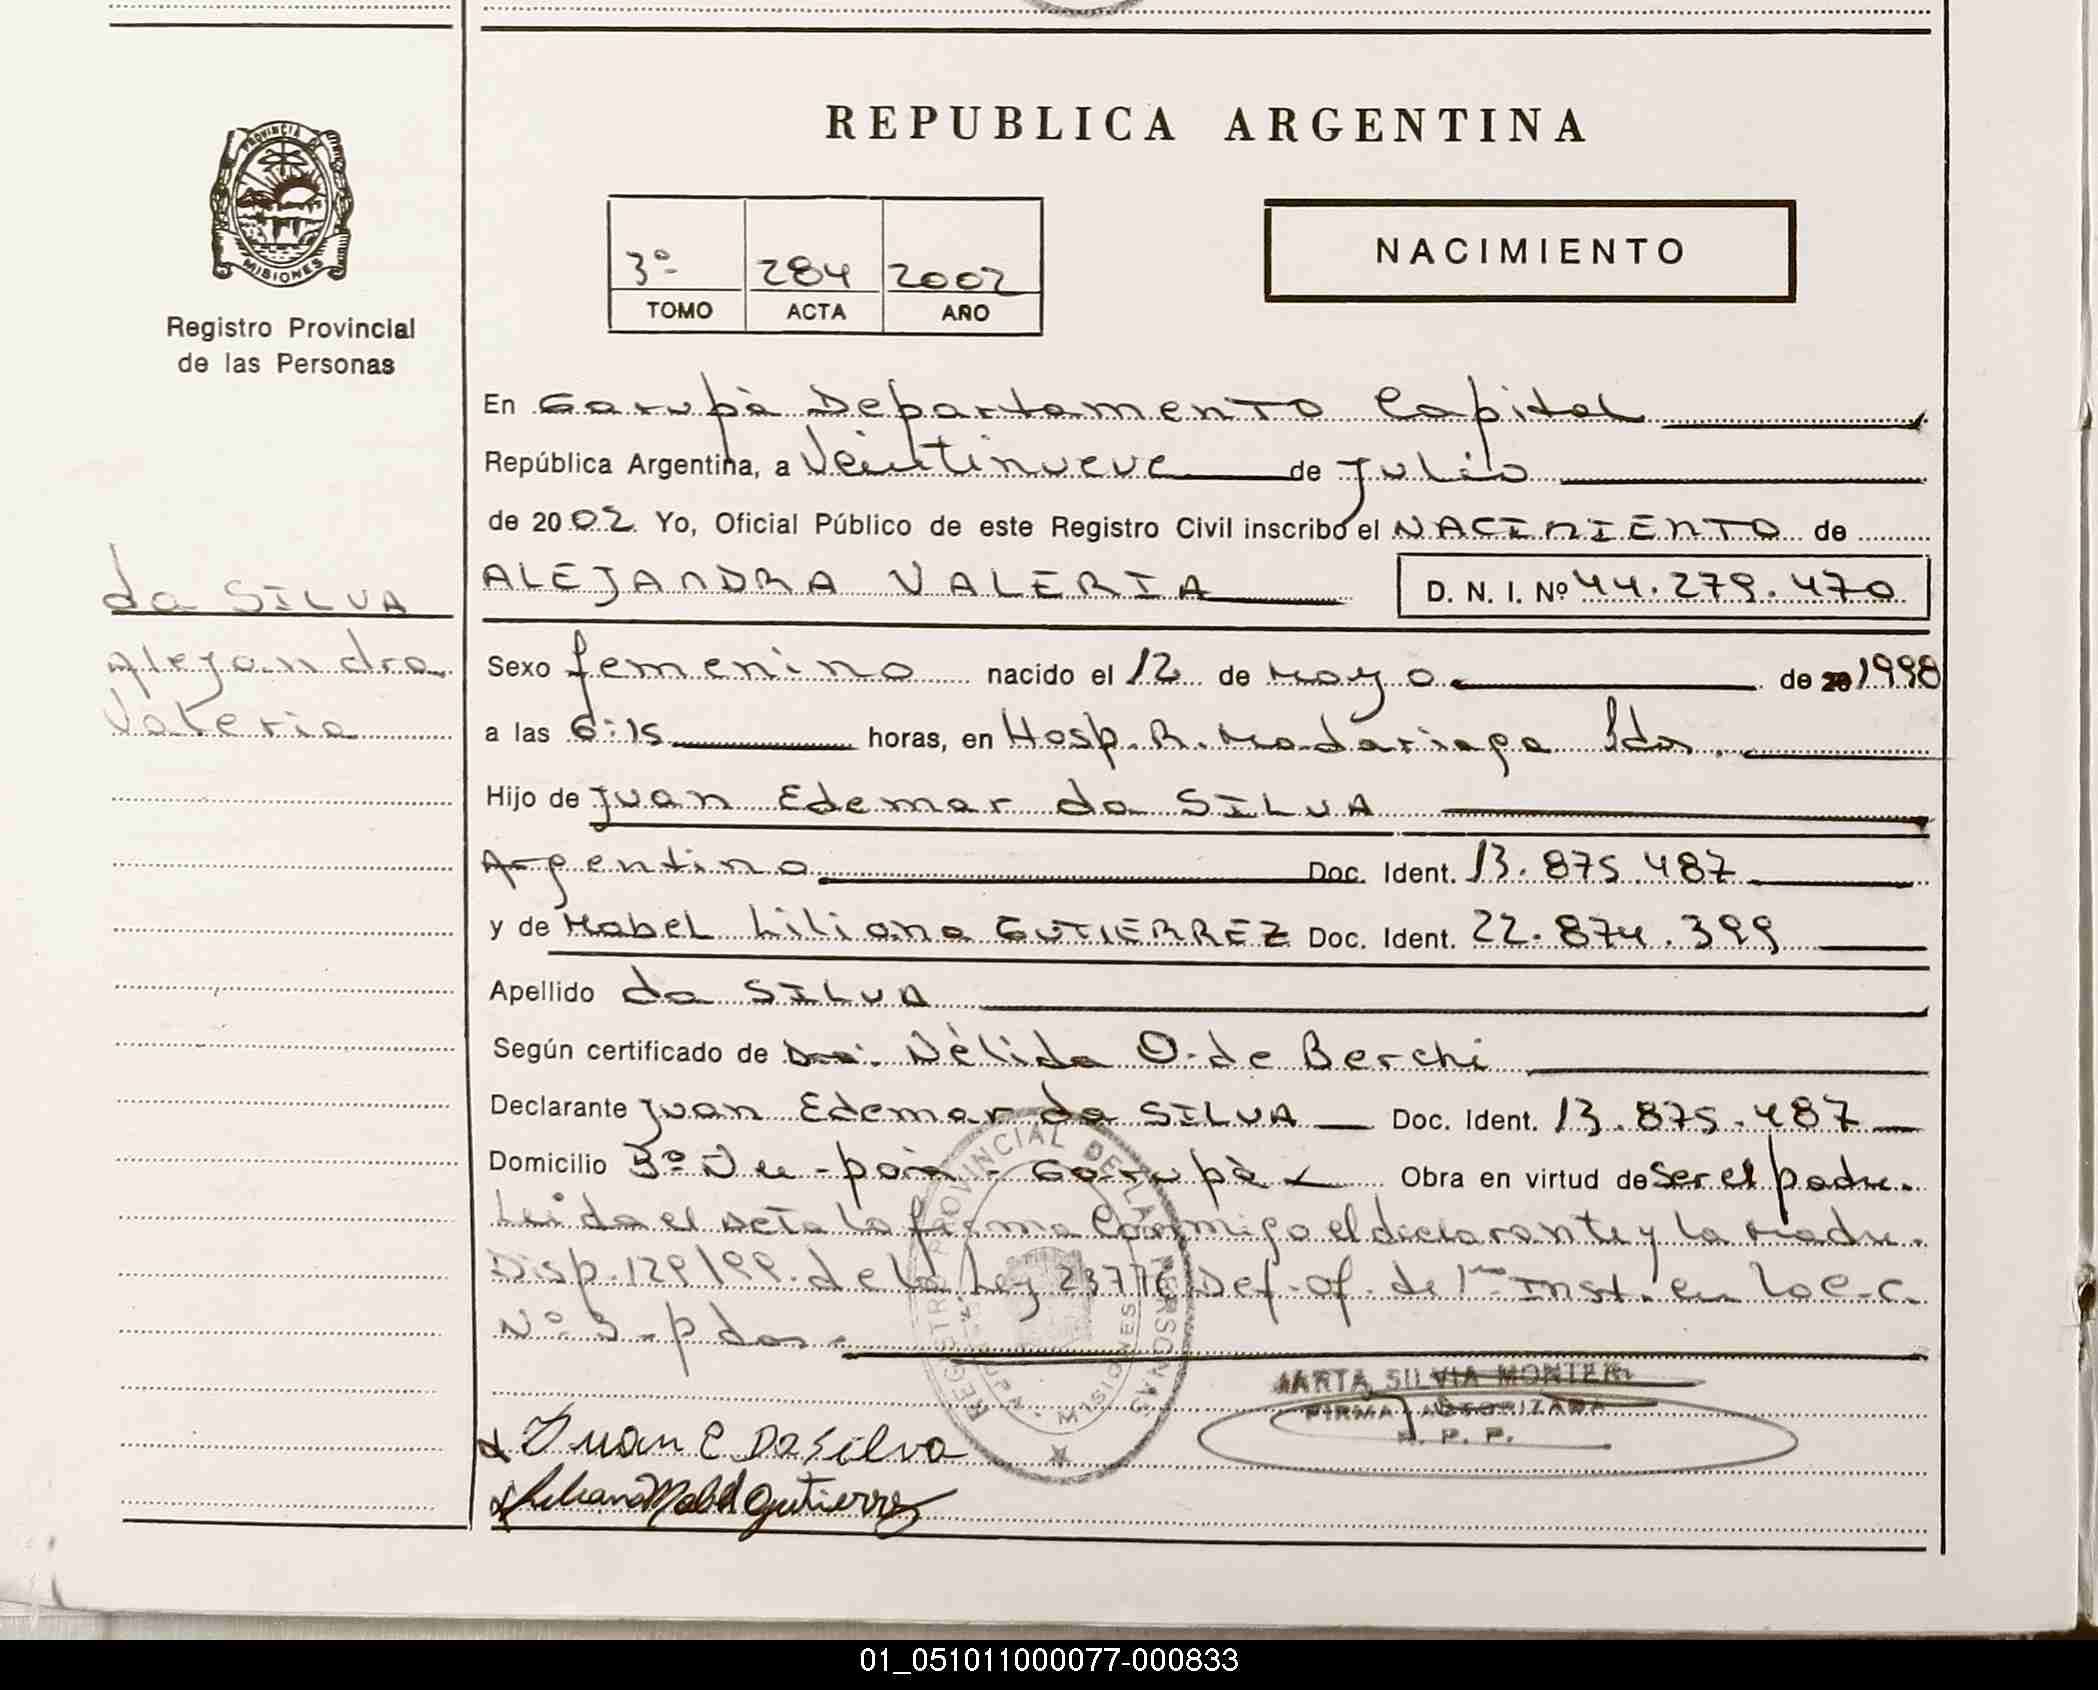 REPUBLICA ARGENTINA
PROVINCIA DE
MISIONES
Registro Provincial
de las Personas
3º 284 2002
TOMO ACTA AÑO
NACIMIENTO
En Garupà Departamento Capital
República Argentina, a Veintinueve de Julio
de 2002 Yo, Oficial Público de este Registro Civil inscribo el NACIMIENTO de
da SILVA
Alejandra
Valeria
ALEJANDRA VALERIA D. N. I. Nº 44.279.470
Sexo femenino nacido el 12 de Mayo de 20 1998
a las 6:15 horas, en Hosp. R. Madariaga Pdas.
Hijo de Juan Edemar da SILVA
Argentino Doc. Ident. 13.875.487
y de Mabel Liliana GUTIERREZ Doc. Ident. 22.874.399
Apellido da SILVA
Según certificado de Dra. Nélida O. de Berchi
Declarante Juan Edemar da SILVA Doc. Ident. 13.875.487
Domicilio 3º - Garupà Obra en virtud de Ser el padre.
Leida el acta la firma Conmigo el declarante y la Madre.
Disp. 129/99. de la Ley 23776 Def. Of. de 1ra Inst. en lo C.C.
Nº 3 - Pdas.
REGISTRO PROVINCIAL DE LAS PERSONAS
MISIONES
MARTA SILVIA MONTER
FIRMA AUTORIZADA
R. P. P.
Juan E Da Silva
Liliana Mabel Gutierrez
01_051011000077-000833